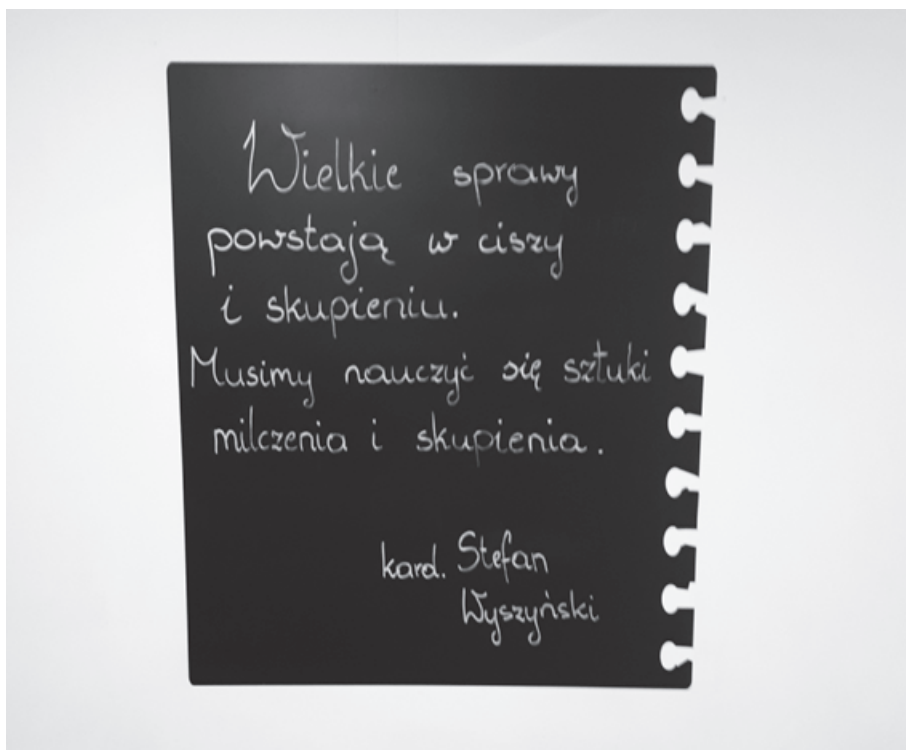 Wielkie sprawy
powstają w ciszy
i skupieniu.
Musimy nauczyć się sztuki
milczenia i skupienia.
kard. Stefan
Wyszyński